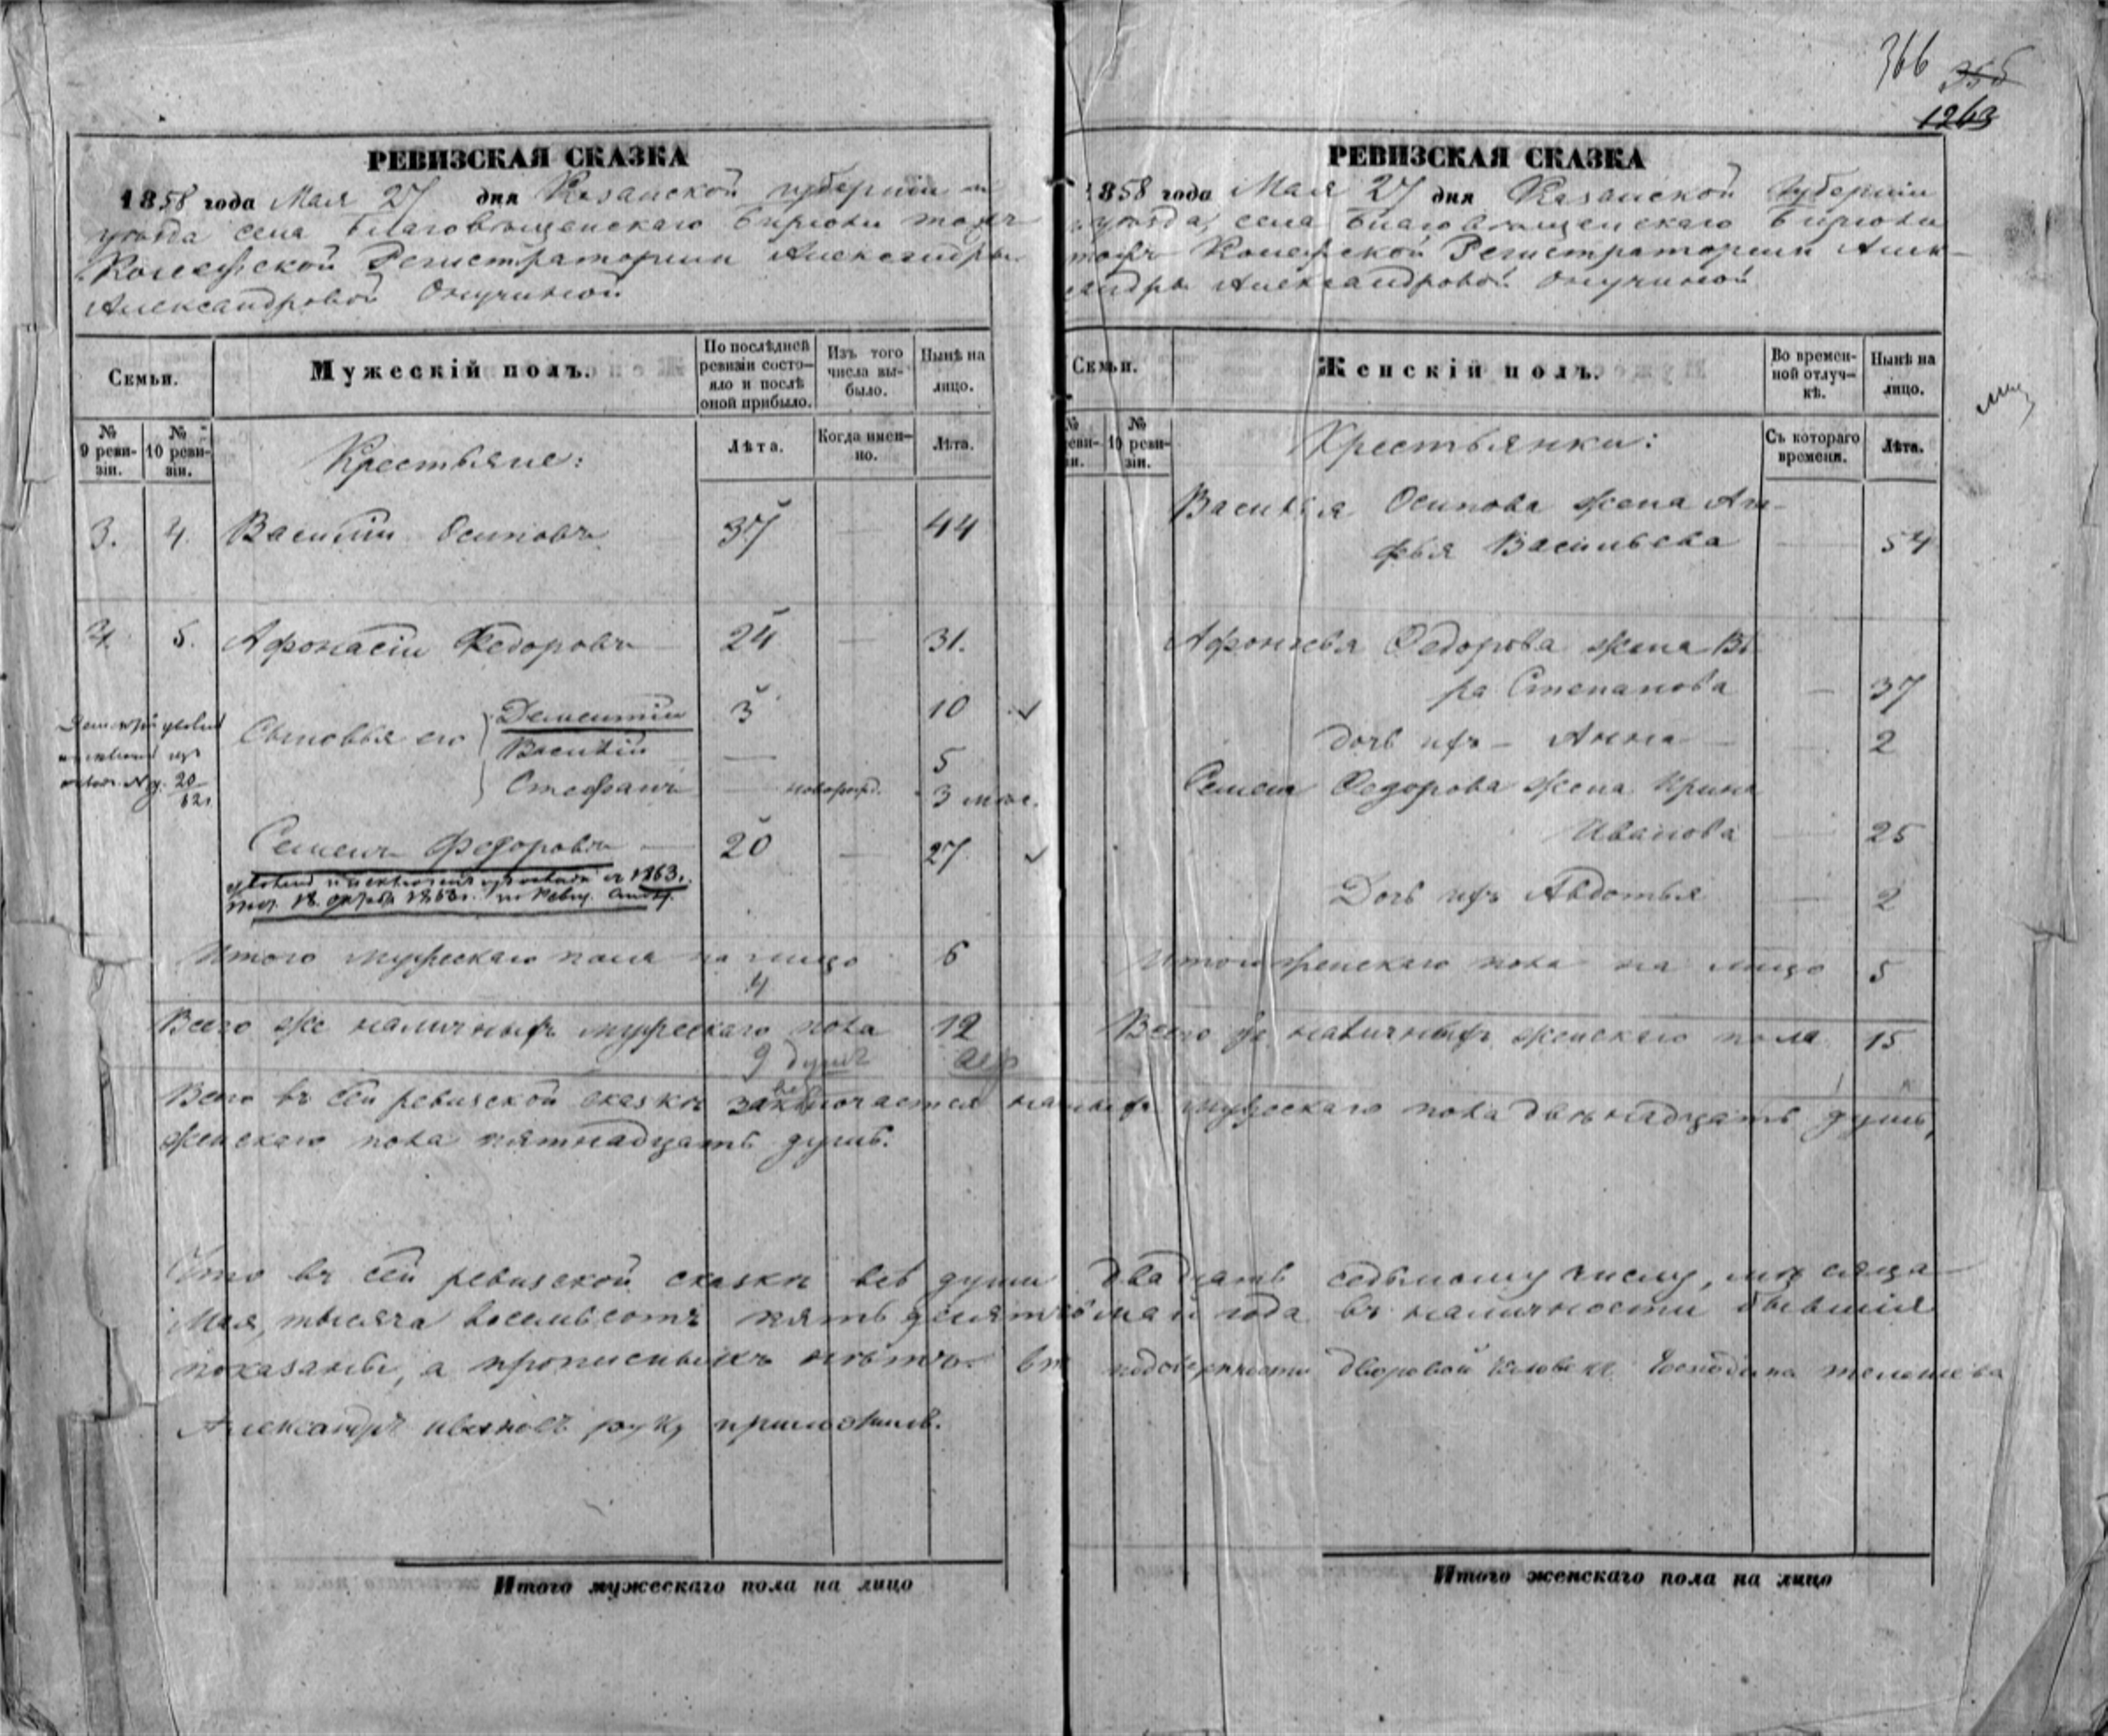 366 355
1263
РЕВИЗСКАЯ СКАЗКА
1858 года Мая 27 дня Казанской губернии
уѣзда села Благовѣщенскаго Бирюли тожъ
Колежской Регистраторши Александры
Александровой Онучиной
Семьи.
Мужескій полъ.
По послѣдней ревизіи состояло и послѣ оной прибыло.
Изъ того числа выбыло.
Нынѣ на лицо.
№ 9 ревизіи.
№ 10 ревизіи.
Крестьяне:
Лѣта.
Когда именно.
Лѣта.
3. 4. Василій Осиповъ 37 — 44
4. 5. Афонасій Федоровъ 24 — 31.
Сыновья его Дементій 3 10
Василій — 5
Стефанъ — новорожд. 3 мѣс.
20
Семенъ Федоровъ — 20 — 27
1863.
Итого мужескаго пола на лицо 6
4
Всего же наличныхъ мужескаго пола 12
9 душъ
РЕВИЗСКАЯ СКАЗКА
1858 года Мая 27 дня Казанской Губерніи
уѣзда, села Благовѣщенскаго Бирюли
тожъ Колежской Регистраторши Алек-
сандры Александровой Онучиной
Семьи.
Женскій полъ.
Во временной отлучкѣ.
Нынѣ на лицо.
№ 9 ревизіи.
№ 10 ревизіи.
Крестьянки:
Съ котораго времени.
Лѣта.
Василья Осипова жена Ага-
фья Васильева — 54
Афонасья Федорова жена Вѣ-
ра Степанова — 37
дочь ихъ — Анна — 2
Семена Федорова жена Ирина
Иванова — 25
Дочь ихъ Авдотья — 2
Итого женскаго пола на лицо 5
Всего же наличныхъ женскаго пола 15
Всего въ сей ревизской сказкѣ заключается мужескаго пола двѣнадцать душъ,
женскаго пола пятнадцать душъ.
Что въ сей ревизской сказки всѣ души двадцать седьмому числу, мѣсяца
Мая, тысяча восемьсотъ пятьдесятъ года въ наличности бывшія
показаны, а прописныхъ нѣтъ. въ дворовой человекъ Господина
Александръ Ивановъ руку приложилъ.
Итого мужескаго пола на лицо
Итого женскаго пола на лицо